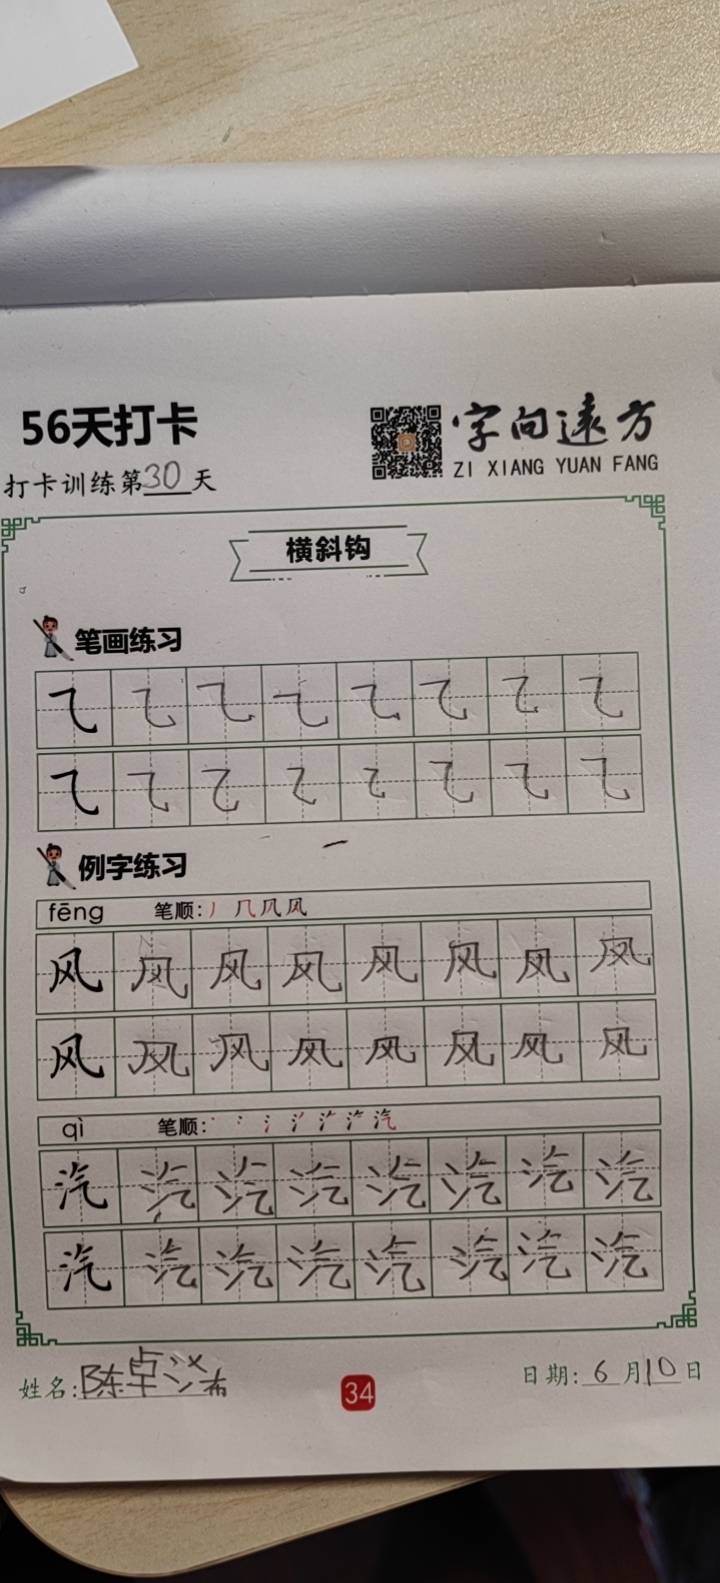 56天打卡
字向遠方
ZI XIANG YUAN FANG
打卡训练第30天
横斜钩
笔画练习
⺄ ⺄ ⺄ ⺄ ⺄ ⺄ ⺄ ⺄
⺄ ⺄ ⺄ ⺄ ⺄ ⺄ ⺄ ⺄
例字练习
fēng 笔顺:丿 几 凤 风
风 风 风 风 风 风 风 风
风 风 风 风 风 风 风 风
qì 笔顺:
汽 汽 汽 汽 汽 汽 汽 汽
汽 汽 汽 汽 汽 汽 汽 汽
姓名:陈卓
34
日期:6月10日